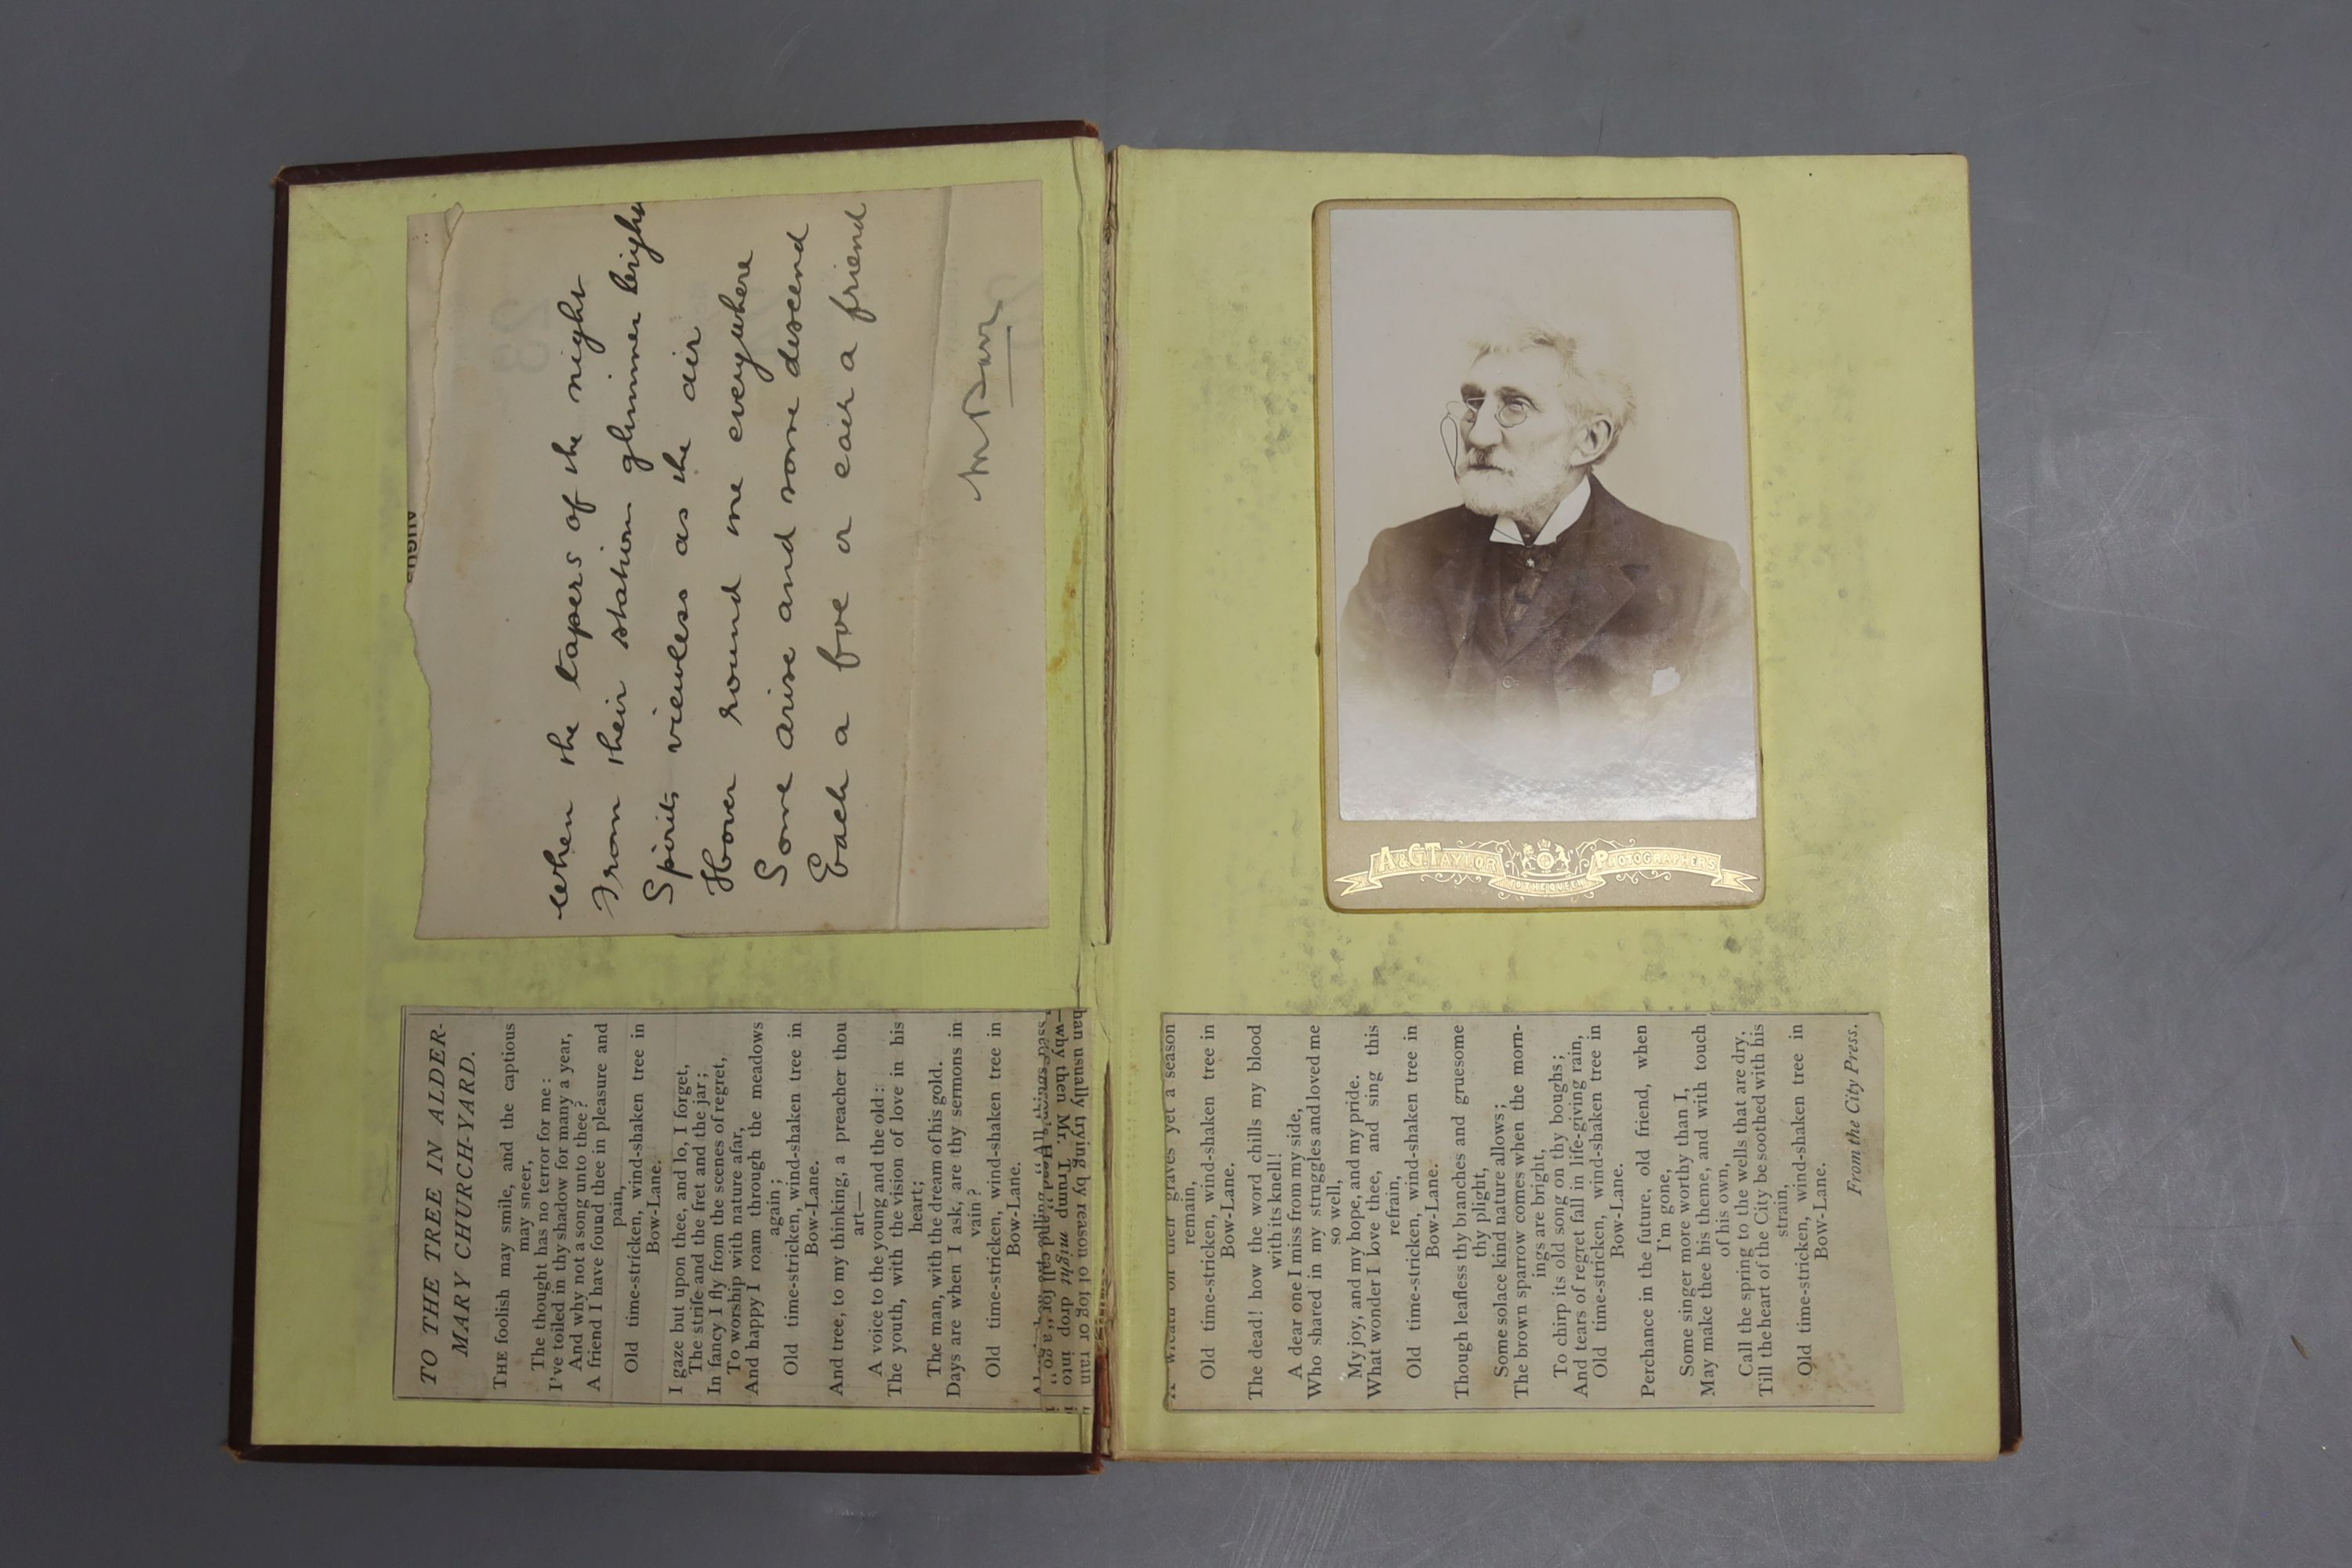 When the tapers of the night
From their station glimmer bright
Spirits viewless as the air
Hover round me everywhere
Some arise and some descend
Each a foe or each a friend
TO THE TREE IN ALDER-
MARY CHURCH-YARD.
THE foolish may smile, and the captious
may sneer,
The thought has no terror for me:
I've toiled in thy shadow for many a year,
And why not a song unto thee?
A friend I have found thee in pleasure and
pain,
Old time-stricken, wind-shaken tree in
Bow-Lane.
I gaze but upon thee, and lo, I forget,
The strife and the fret and the jar;
In fancy I fly from the scenes of regret,
To worship with nature afar,
And happy I roam through the meadows
again;
Old time-stricken, wind-shaken tree in
Bow-Lane.
And tree, to my thinking, a preacher thou
art—
A voice to the young and the old:
The youth, with the vision of love in his
heart;
The man, with the dream of his gold.
Days are when I ask, are thy sermons in
vain?
Old time-stricken, wind-shaken tree in
Bow-Lane.
han usually trying by reason of fog or rain
—why then Mr. Trump might drop into
A wreath on their graves yet a season
remain,
Old time-stricken, wind-shaken tree in
Bow-Lane.
The dead! how the word chills my blood
with its knell!
A dear one I miss from my side,
Who shared in my struggles and loved me
so well,
My joy, and my hope, and my pride.
What wonder I love thee, and sing this
refrain,
Old time-stricken, wind-shaken tree in
Bow-Lane.
Though leafless thy branches and gruesome
thy plight,
Some solace kind nature allows;
The brown sparrow comes when the morn-
ings are bright,
To chirp its old song on thy boughs;
And tears of regret fall in life-giving rain,
Old time-stricken, wind-shaken tree in
Bow-Lane.
Perchance in the future, old friend, when
I'm gone,
Some singer more worthy than I,
May make thee his theme, and with touch
of his own,
Call the spring to the wells that are dry,
Till the heart of the City be soothed with his
strain,
Old time-stricken, wind-shaken tree in
Bow-Lane.
From the City Press.
A & G. TAYLOR PHOTOGRAPHERS
TO THE QUEEN